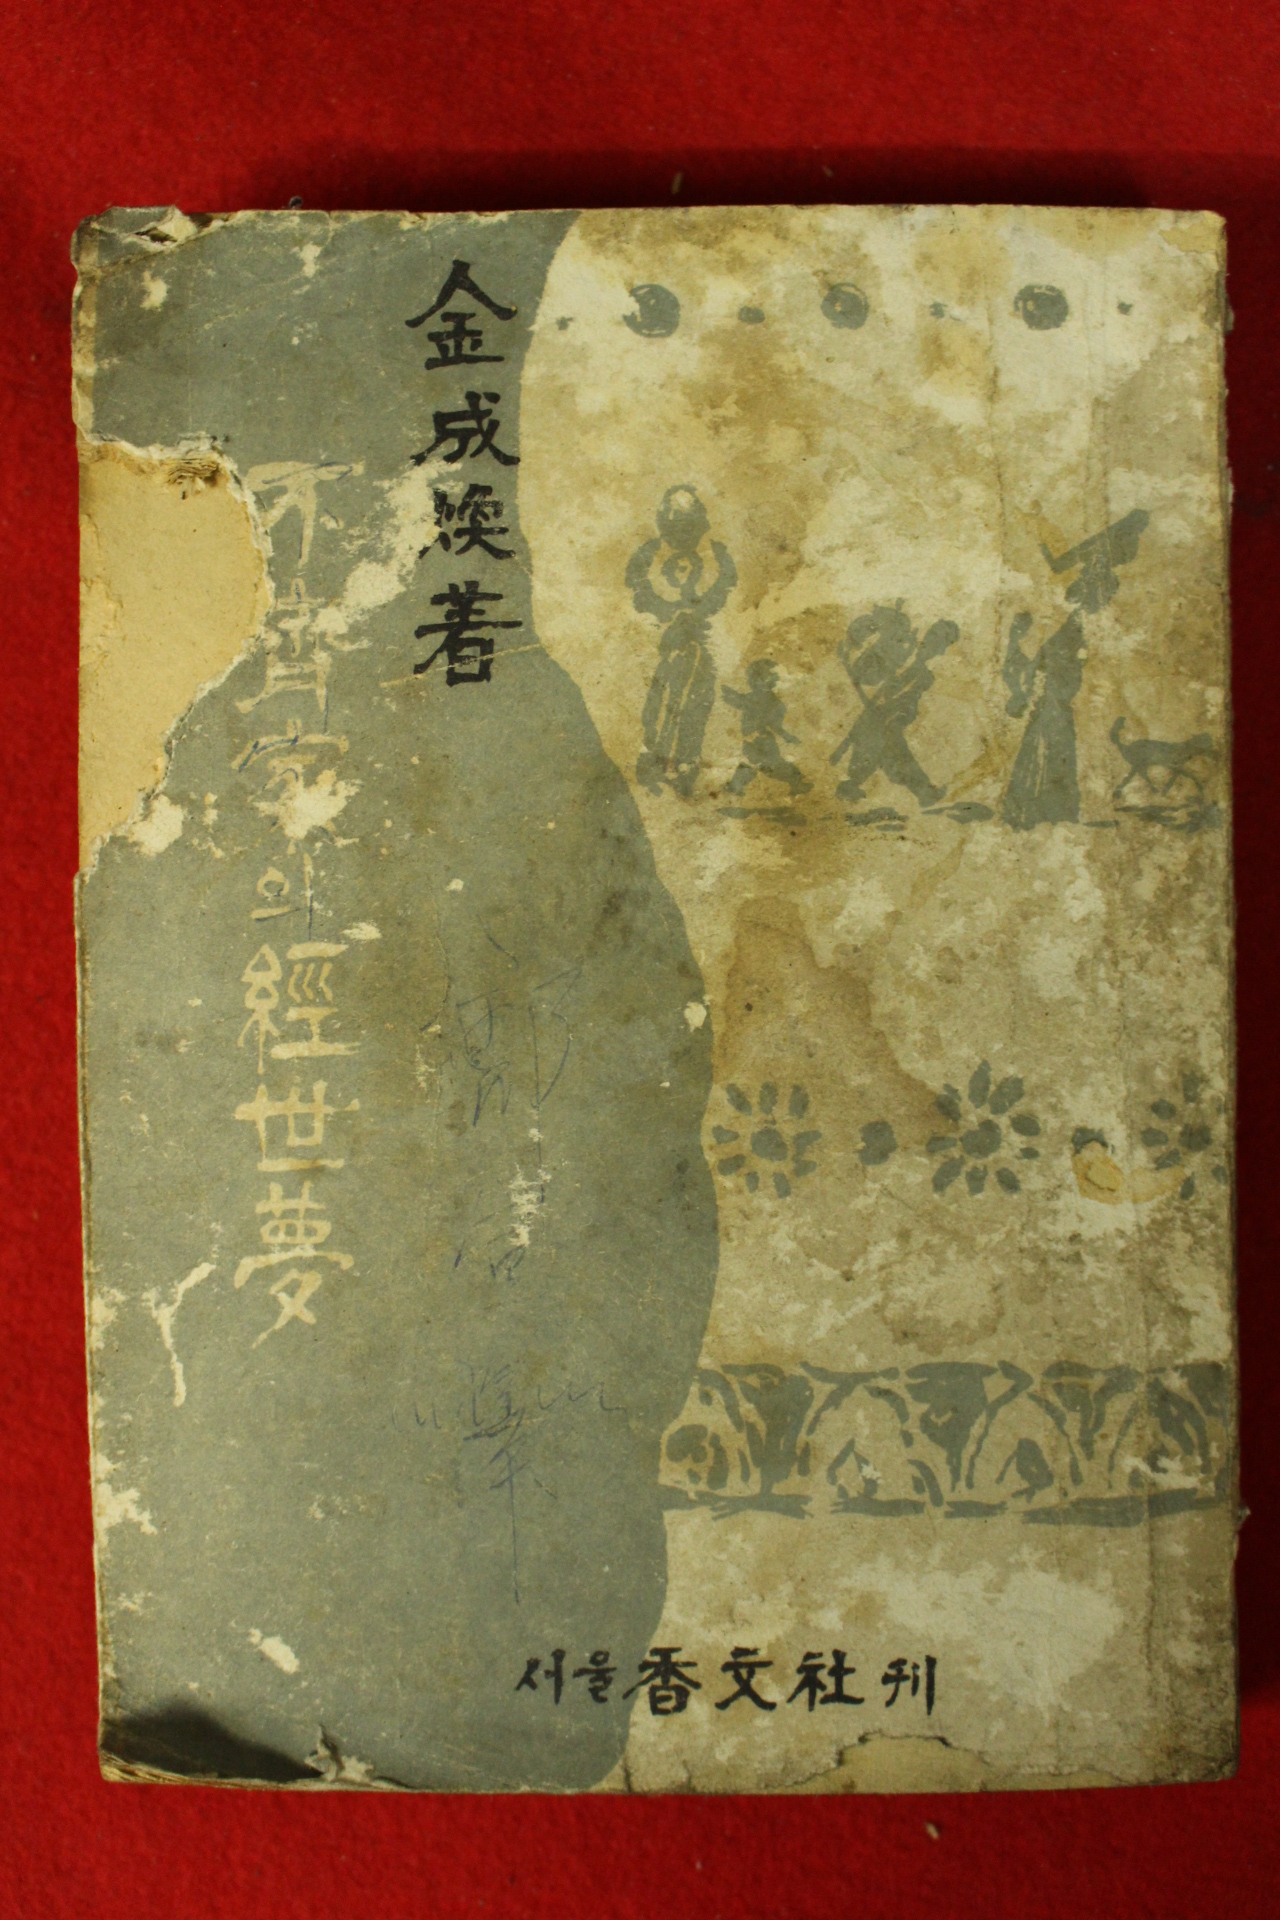 金成煥著
不齊家의經世夢
서울香文社刊